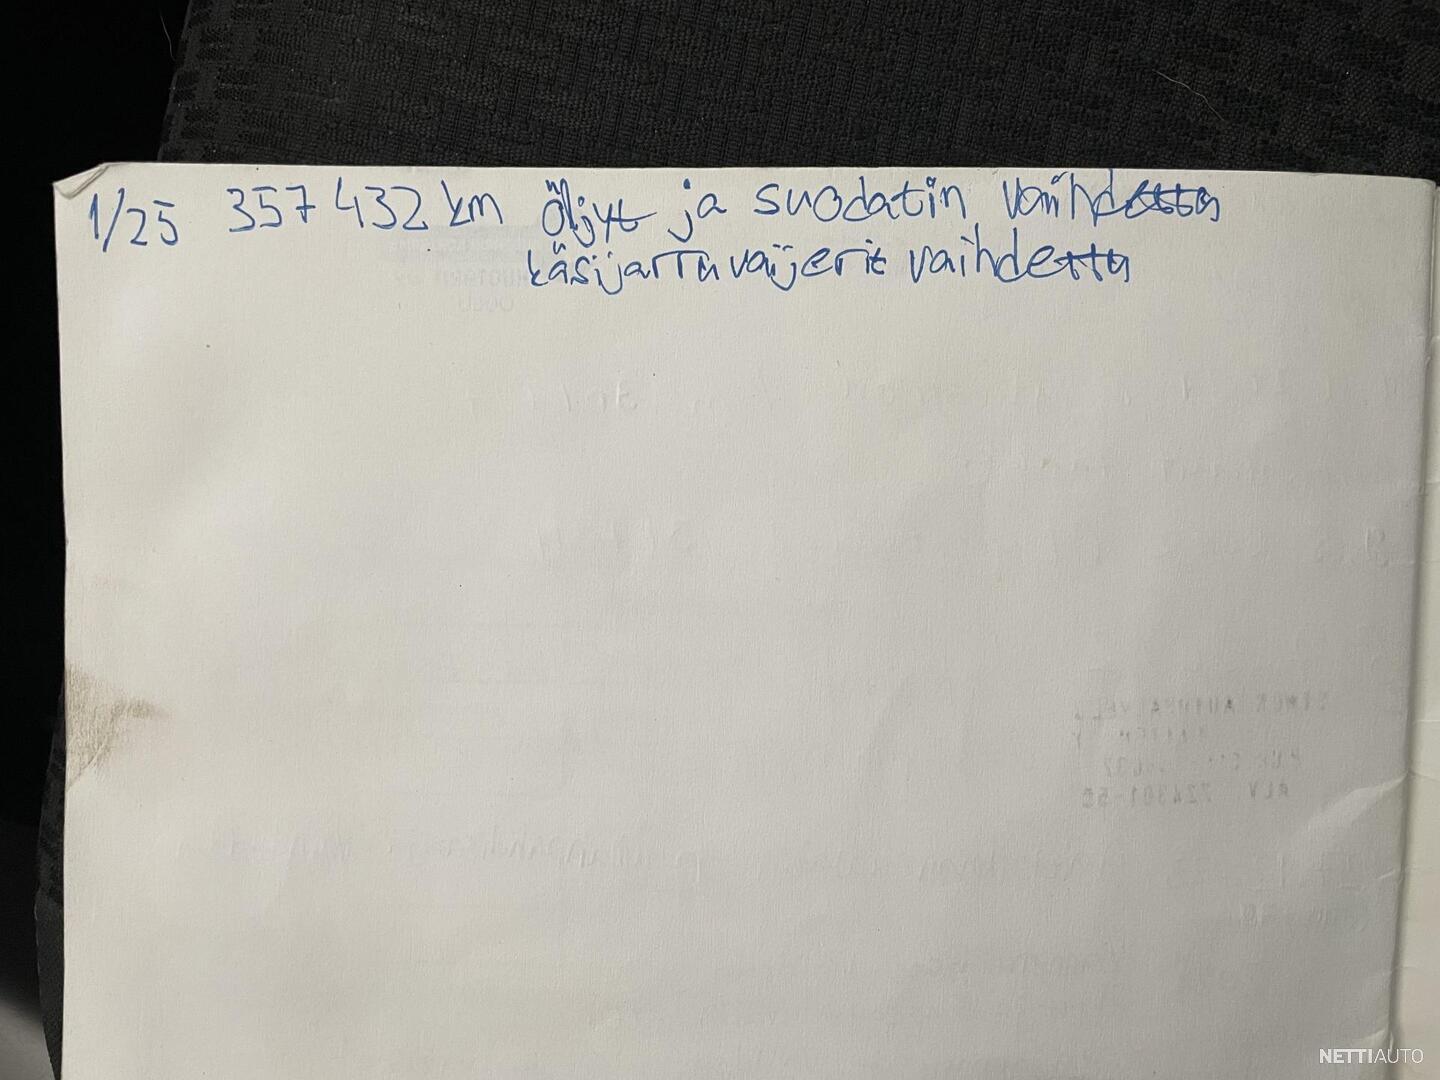 1/25 357 432 km öljyt ja suodatin vaihdettu
käsijarruvaijerit vaihdettu
NETTIAUTO